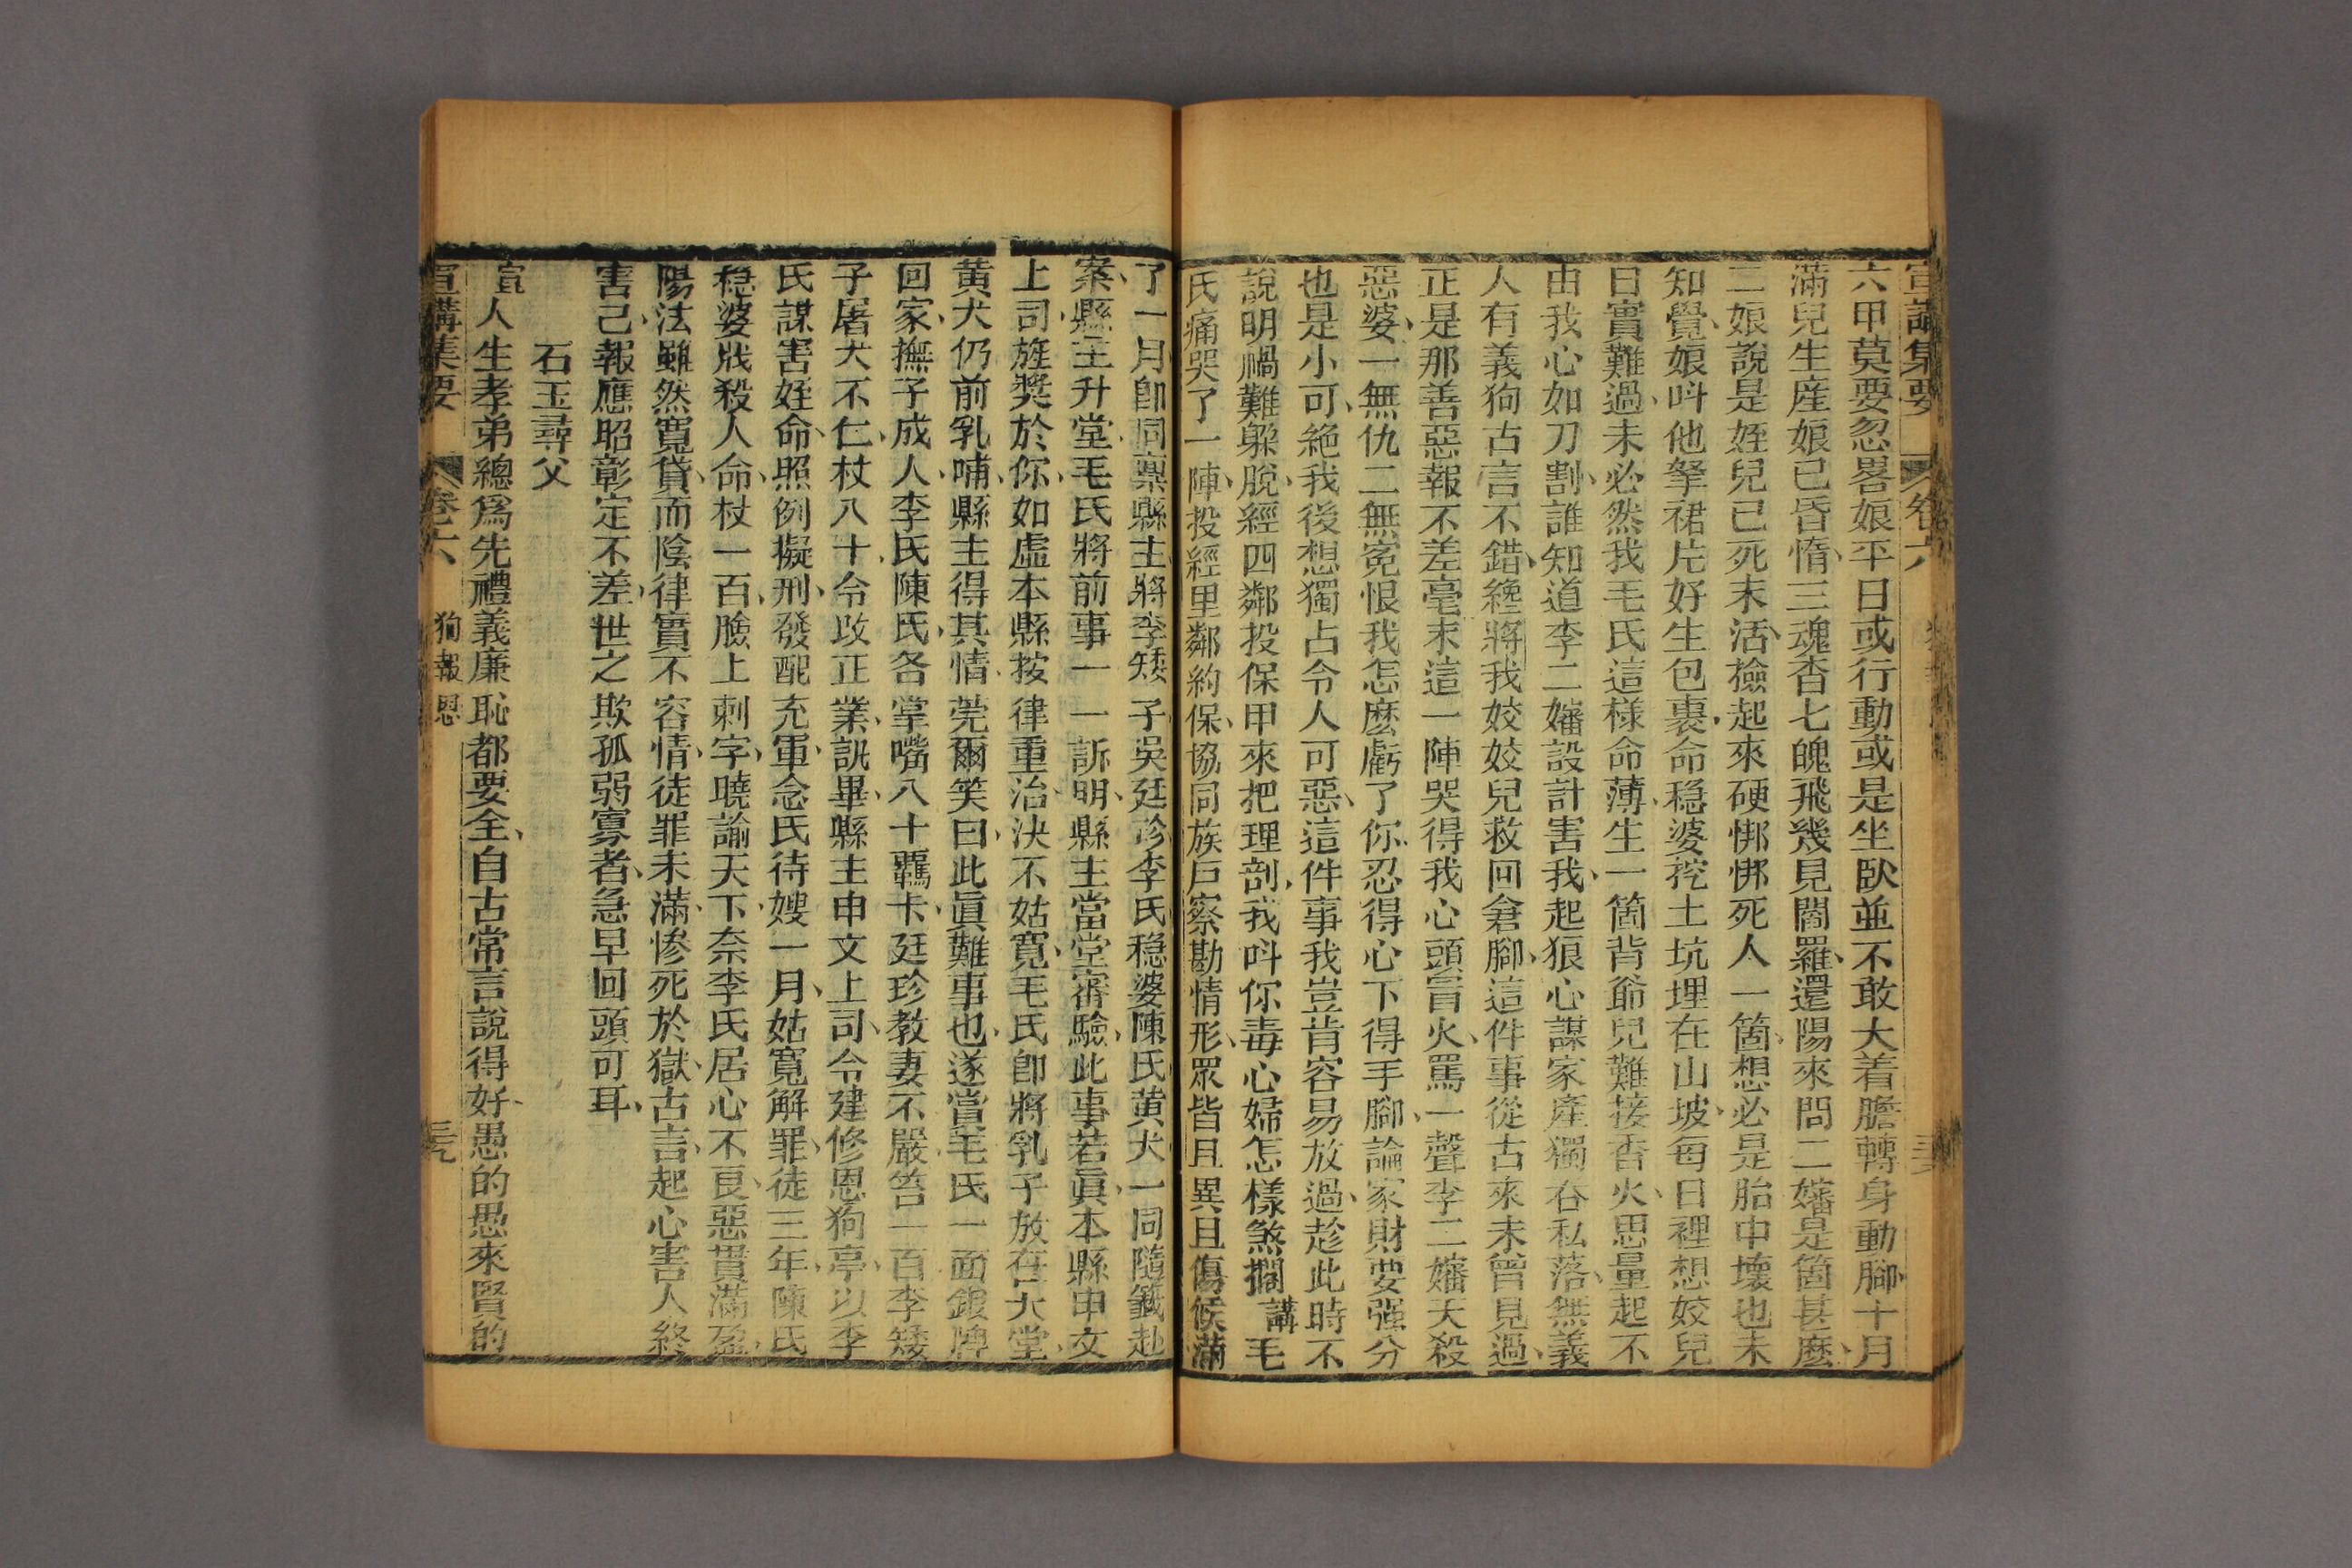 宣講集要 卷六
六甲莫要忽畧娘平日或行動或是坐臥並不敢大着膽轉身動腳十月
滿兒生産娘已昏惰三魂杳七魄飛幾見閻羅還陽來問二嬸是箇甚麽
二娘說是姪兒已死末活撿起來硬梆梆死人一箇想必是胎中壞也未
知覺娘呌他拏裙片好生包裹命穏婆挖土坑埋在山坡每日裡想姣兒
日實難過未必然我毛氏這樣命薄生一箇背爺兒難接香火思量起不
由我心如刀割誰知道李二嬸設計害我起狼心謀家產獨吞私落無義
人有義狗古言不錯纔將我姣姣兒救回倉腳這件事從古來未曾見過
正是那善惡報不差毫末這一陣哭得我心頭冒火罵一聲李二嬸天殺
惡婆一無仇二無寃恨我怎麽虧了你忍得心下得手腳論家財要强分
也是小可絶我後想獨占令人可惡這件事我豈肯容易放過趁此時不
說明禍難躲脫經四鄰投保甲來把理剖我呌你毒心婦怎樣煞擱 講 毛
氏痛哭了一陣投經里鄰約保協同族戶察勘情形眾皆且異且傷候滿
了一月卽同稟縣主將李矮子吳廷珍李氏穏婆陳氏黄犬一同隨籤赴
案縣主升堂毛氏將前事一一訴明縣主當堂審驗此事若眞本縣申文
上司旌奬於你如虛本縣按律重治決不姑寛毛氏卽將乳子放在大堂
黄犬仍前乳哺縣主得其情莞爾笑曰此眞難事也遂當毛氏一面鍛牌
回家撫子成人李氏陳氏各掌嘴八十羈卡廷珍教妻不嚴笞一百李矮
子屠犬不仁杖八十令改正業訊畢縣主申文上司令建修恩狗亭以李
氏謀害姪命照例擬刑發配充軍念氏待嫂一月姑寬解罪徒三年陳氏
穏婆戕殺人命杖一百臉上刺字曉諭天下奈李氏居心不良惡貫滿盈
陽法雖然寬貸而陰律實不容情徒罪未滿慘死於獄古言起心害人終
害己報應昭彰定不差世之欺孤弱寡者急早回頭可耳
石玉尋父
宣 人生孝弟總爲先禮義廉恥都要全自古常言說得好愚的愚來賢的
宣講集要 卷六 狗報恩 三九